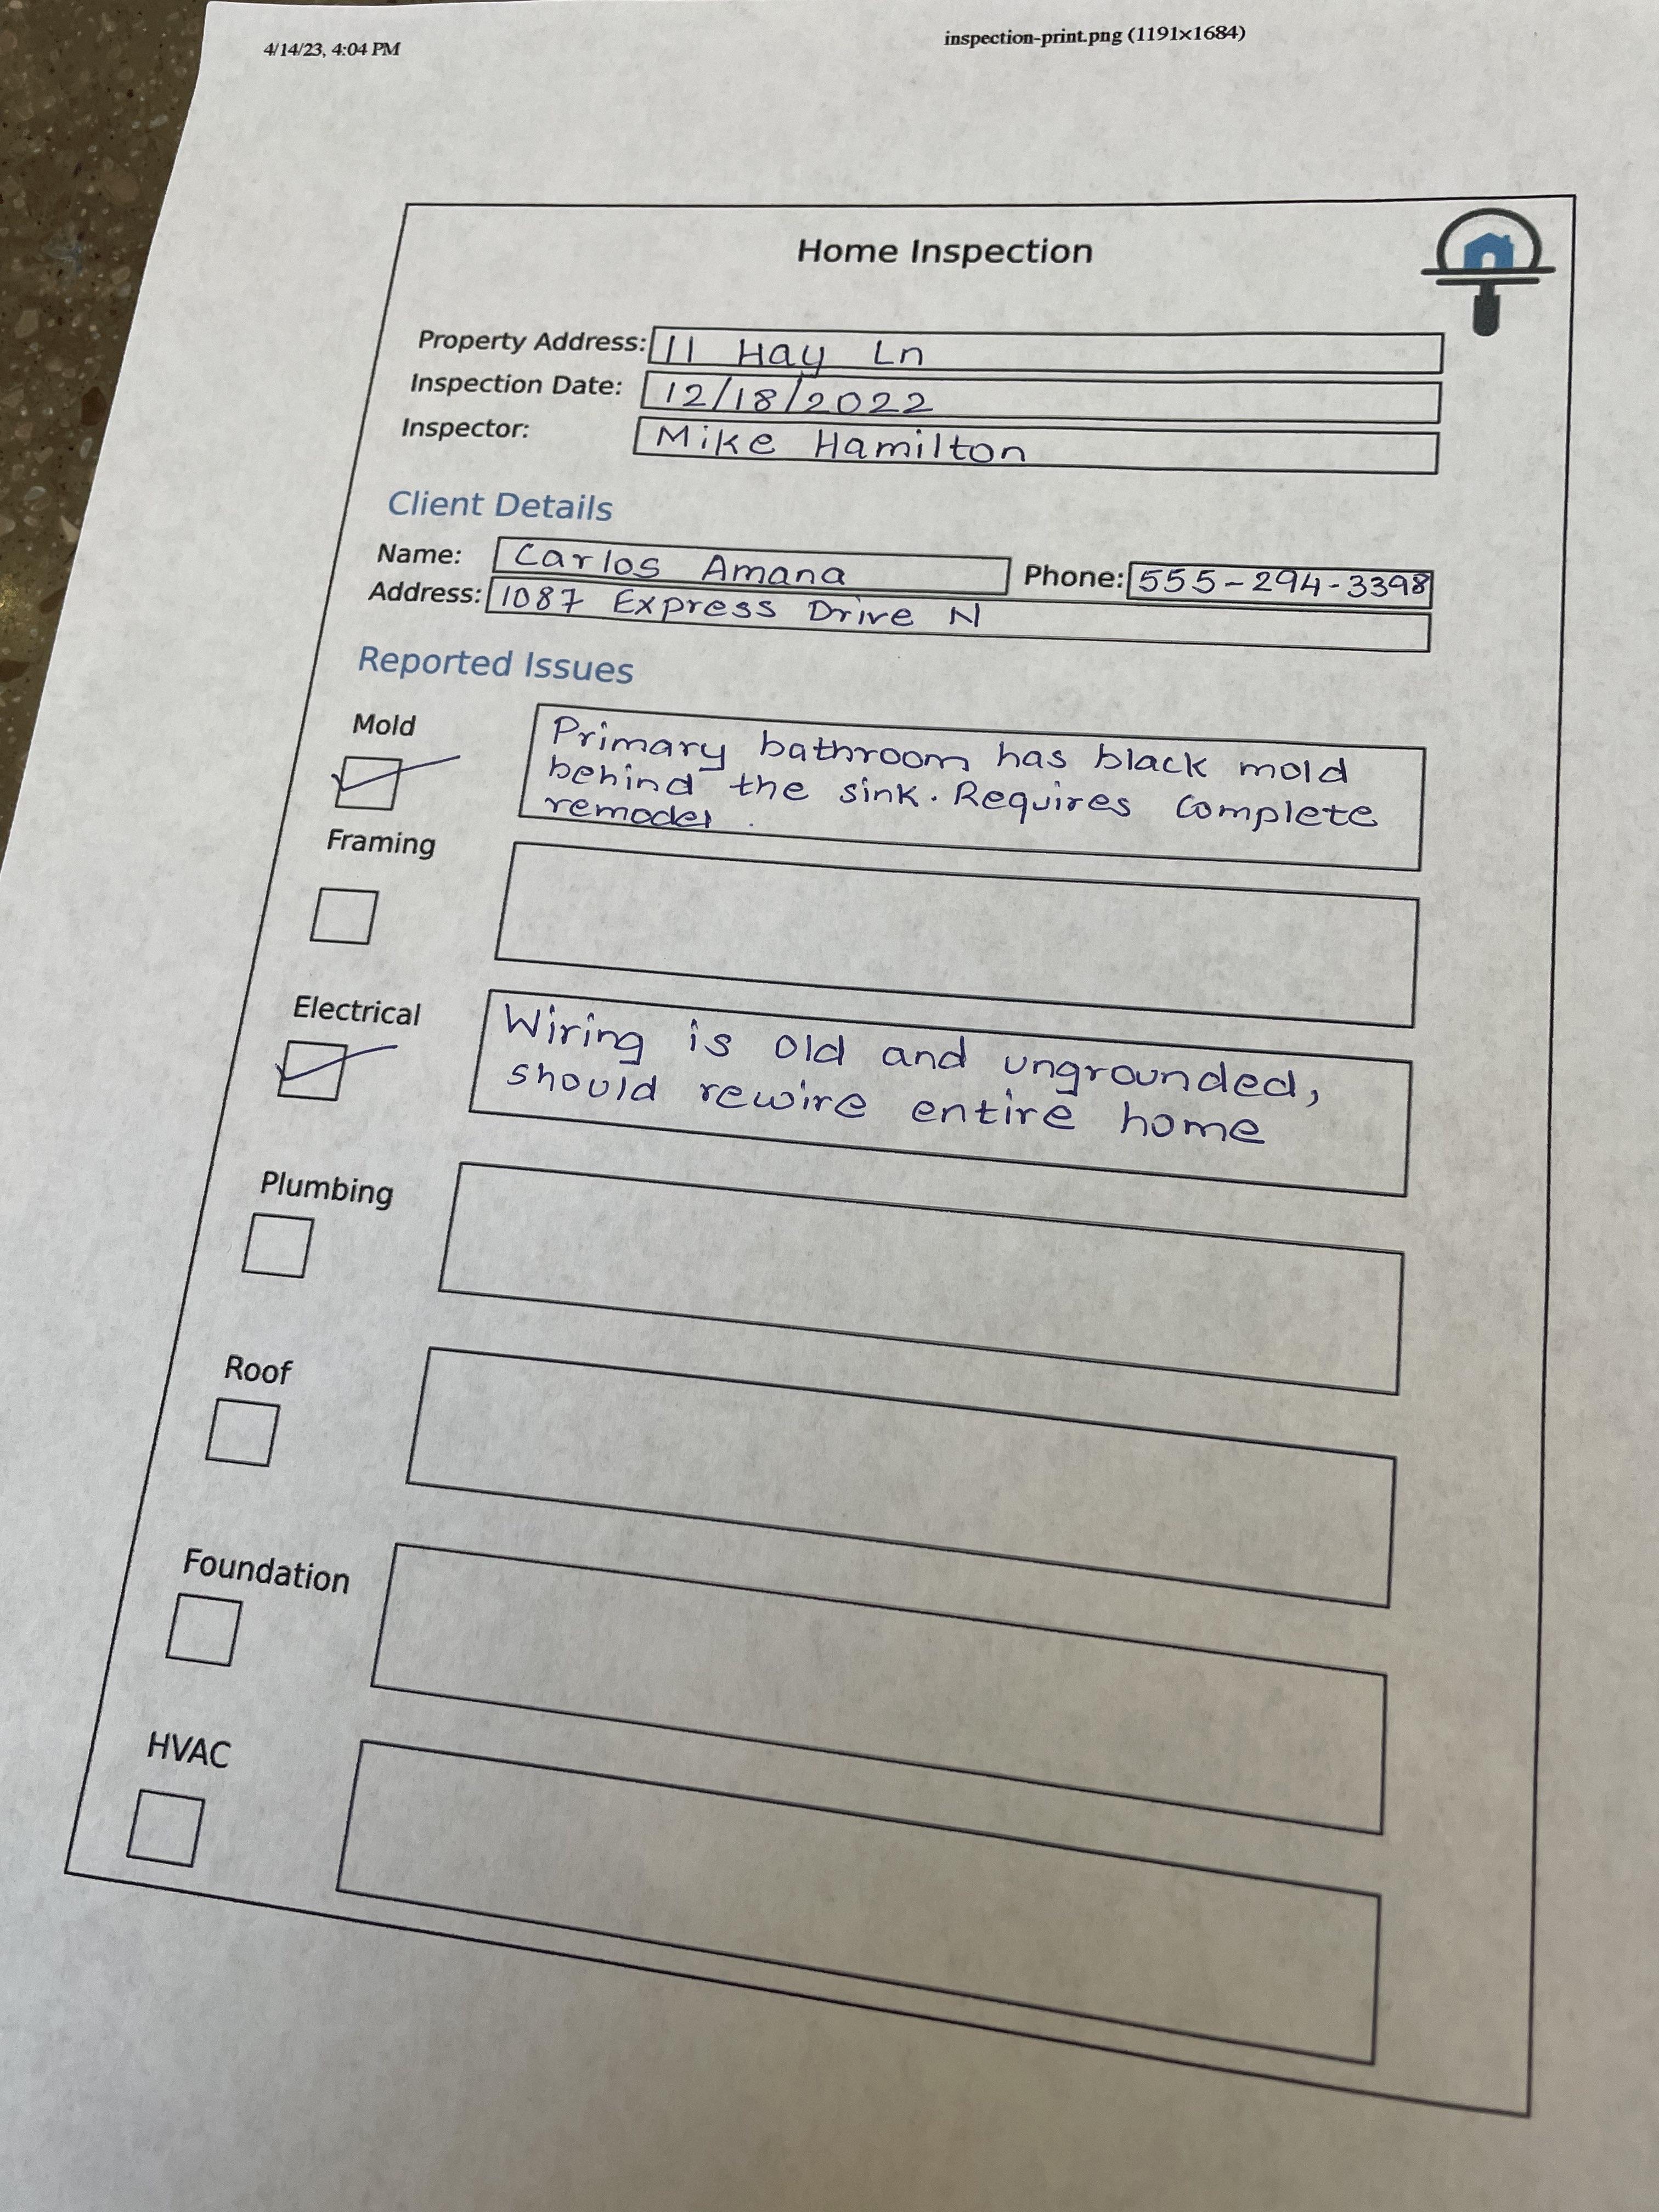 4/14/23, 4:04 PM
inspection-print.png (1191×1684)
Home Inspection
Property Address: 11 Hay Ln
Inspection Date: 12/18/2022
Inspector: Mike Hamilton
Client Details
Name: Carlos Amana Phone: 555-294-3398
Address: 1087 Express Drive N
Reported Issues
Mold
Primary bathroom has black mold
behind the sink. Requires complete
remodel.
Framing
Electrical
Wiring is old and ungrounded,
should rewire entire home
Plumbing
Roof
Foundation
HVAC